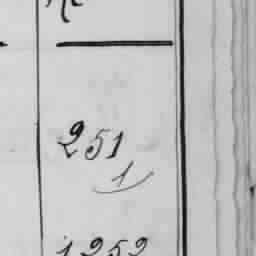 251
1
1252